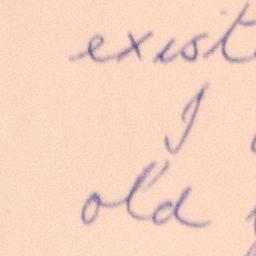 exist
I
old